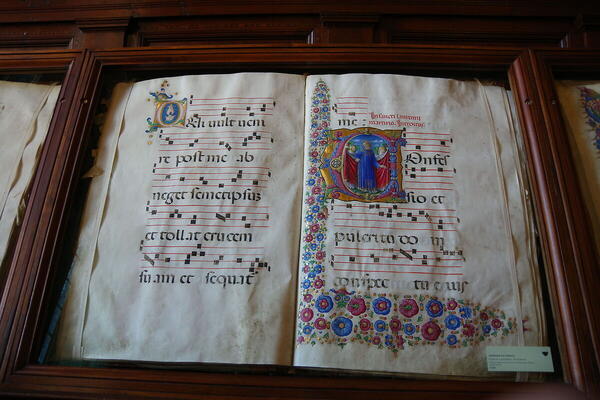 QUi vult ven
re post me ab
neget semetipsus
et tollat crucem
suam et sequat
me
In sancti Laurentii
martiris. Introitus.
COnfes
sio et
pulcritudo in
conspectu eius